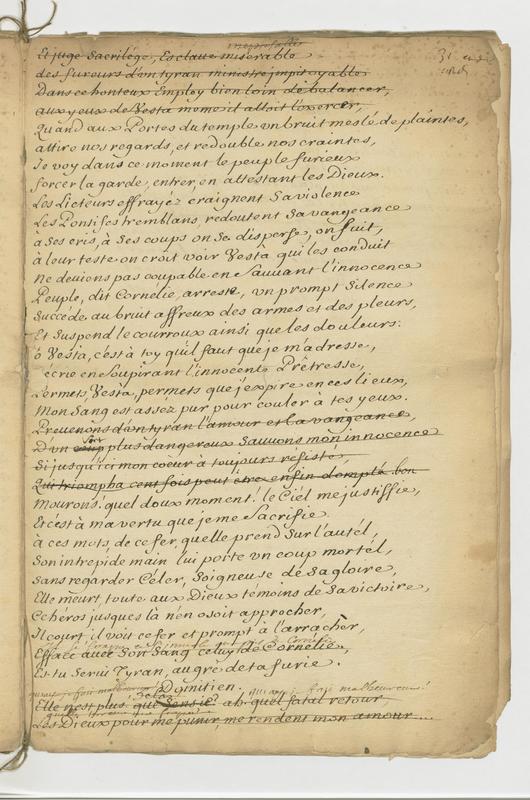 Et juge Sacrilége, Esclave misérable
des fureurs d'un tyran ministre impitoyable
Dans ce honteux Employ bien loin de balancer,
aux yeux de Vesta mome il alloit l'exercer,
Quand aux Portes du temple un bruit meslé de plaintes,
attire nos regards, et redouble nos craintes,
Je voy dans ce moment le peuple furieux
forcer la garde, entrer, en attestant les Dieux.
Les Licteurs effrayéz craignent Sa violence
Les Pontifes tremblans, redoutent Sa vangeance
à Ses cris, à Ses coups on Se disperse, on fuit,
à leur teste on croit voir Vesta qui les conduit
Ne devions pas coupable en Sauvant l'innocence
Peuple, dit Cornélie, arreste, un prompt Silence
Succéde au bruit affreux des armes et des pleurs,
Et Suspend le courroux ainsi que les douleurs.
ô Vesta, c'est à toy qu'il faut que je m'adresse,
écrie en Soupirant l'innocente Prêtresse,
Permets, Vesta, permets que j'expire en ces lieux,
Mon Sang est assez pur pour couler à tes yeux.
Prevenons d'un tyran l'amour et la vangeance,
D'un plus dangereux Sauvons mon innocence
Si jusqu'ici mon coeur à toujours résisté,
Qui triompha cent fois peut etre enfin dompté
Mourons! quel doux moment! le Ciel me justiffie,
Et c'est à ma vertu que je me Sacrifie.
à ces mots, de ce fer, quelle prend Sur l'autél,
Son intrépide main lui porte un coup mortel,
Sans regarder Céler, Soigneuse de Sa gloire,
Elle meurt, toute aux Dieux témoins de Sa victoire,
Ce héros jusques là n'en osoit approcher,
Il court, il voit ce fer et prompt à l'arracher,
Efface avec Son Sang celuy de Cornélie,
Es tu Servi Tyran, au gré de ta furie.
Domitien.
Elle n'est plus ah quel fatal retour,
Les Dieux pour me punir, me rendent mon amour....